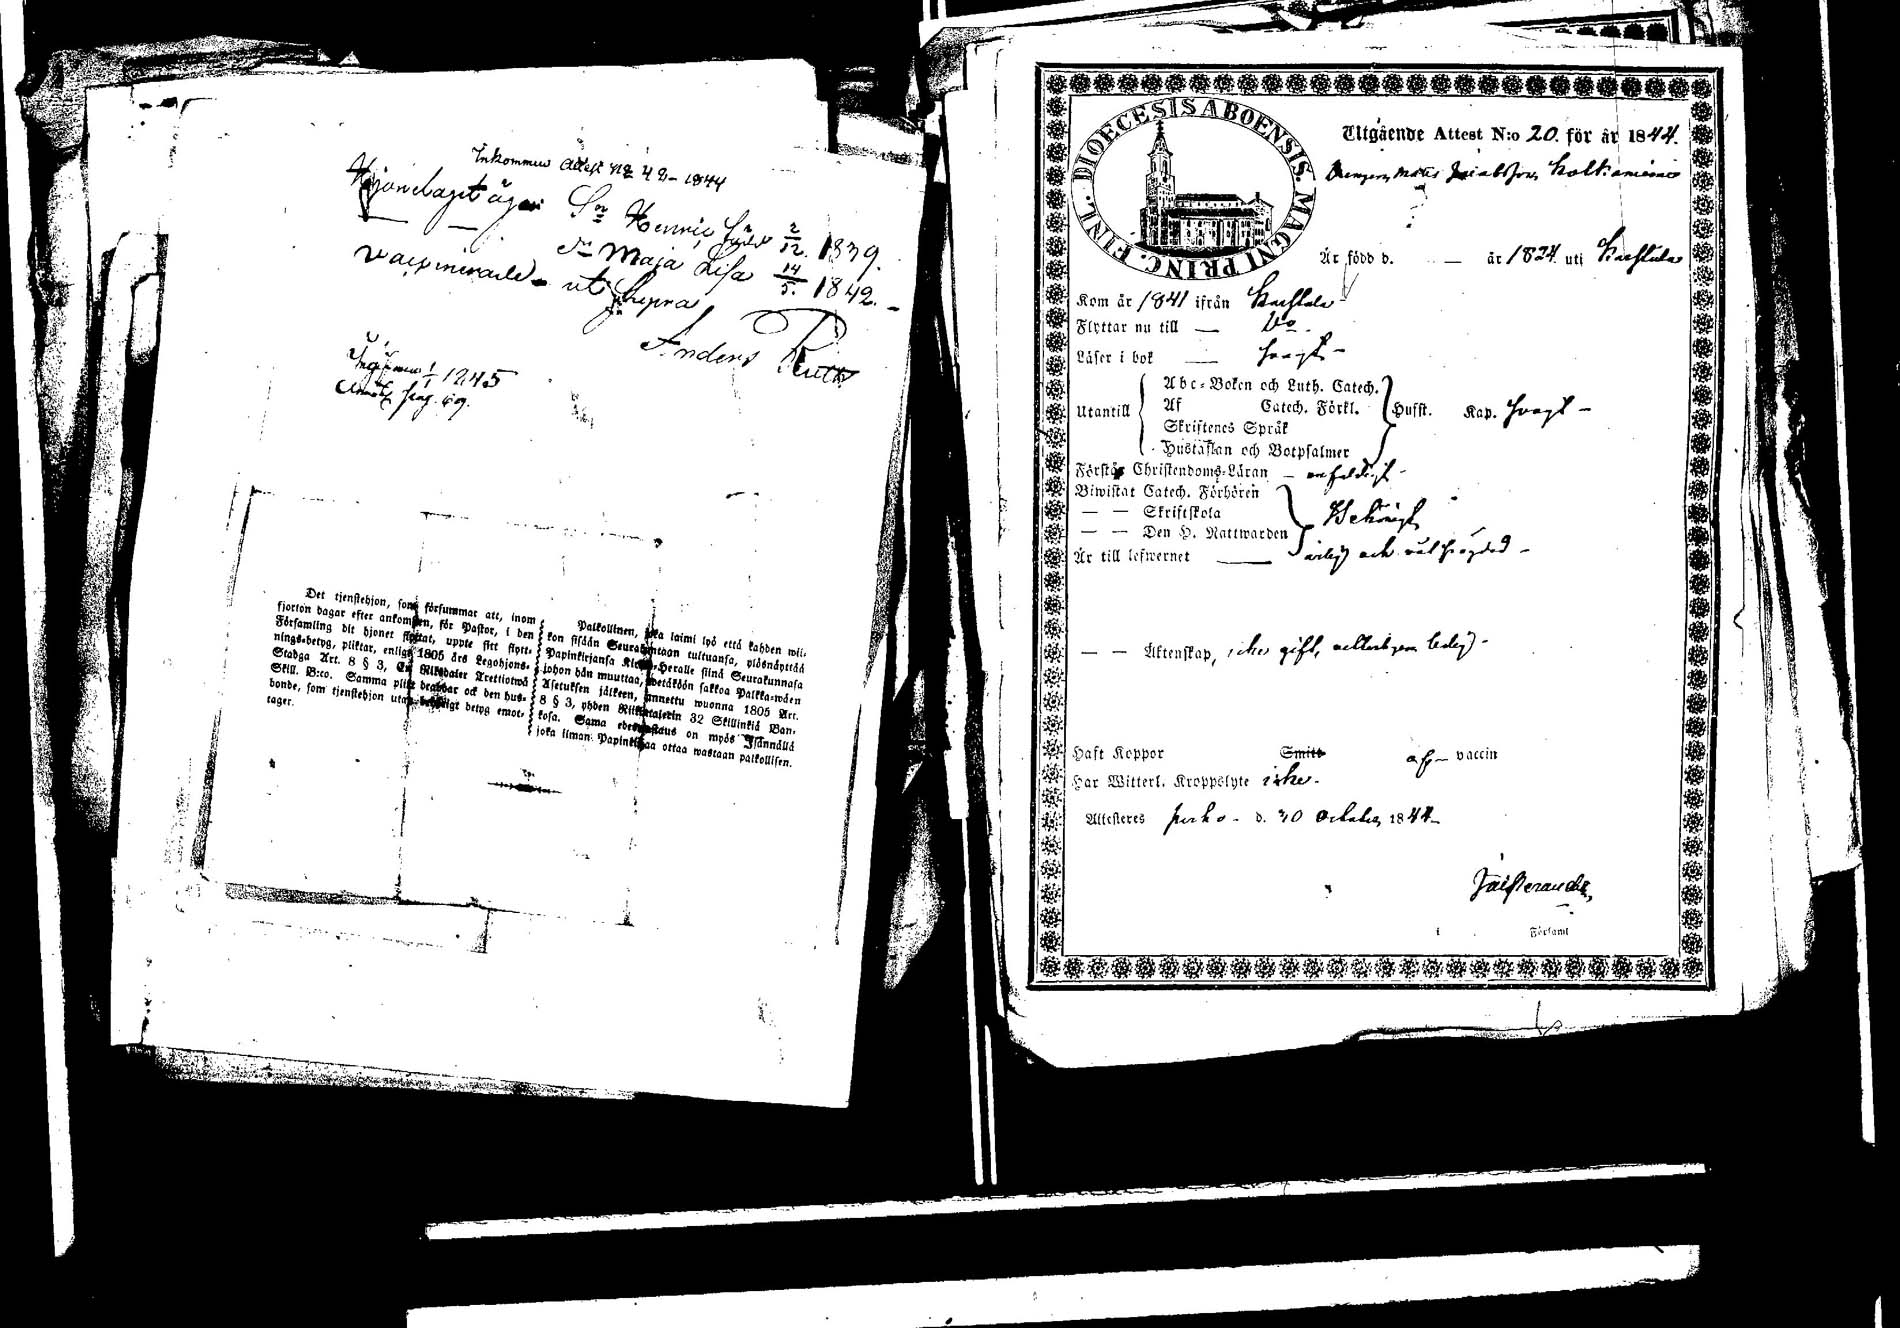 Inkommen Attest No 42 - 1844
Hjonelaget äger Sn Henric född 2/12. 1839.
Dr Maja Lisa 14/5. 1842. -
vaccinerade - ut Supra
Anders
1/1 1845
pag. 69.
Det tjenstehjon, som försummar att, inom
fjorton dagar efter ankomsten, för Pastor, i den
Församling dit hjonet flyttat, uppte sitt flytt-
nings-betyg, pliktar, enligt 1805 års Legohjons-
Stadga Art. 8 § 3, En Riksdaler Trettiotwå
Skill. B:co. Samma plikt drabbar ock den hus-
bonde, som tjenstehjon utan behörigt betyg emot-
tager.
Palkollinen, joka laimi lyö että kahden wii-
kon sisään Seurakuntaan tultuansa, ylösnäyttää
Papinkirjansa Kirkko-Heralle siinä Seurakunnasa
johon hän muuttaa, wetäköön sakkoa Palkka-wäen
Asetuksen jälkeen, annettu wuonna 1805 Art.
8 § 3, yhden Riikintalerin 32 Skillinkiä Ban-
kosa. Sama edeswastaus on myös Isännällä
joka ilman Papinkirjaa ottaa wastaan palkollisen.
DIOECESIS ABOENSIS. MAGNI PRINC. FINL.
Utgående Attest N:o 20. för år 1844.
Drengen Matts Jacobsson
Är född d. — år 1824 uti
Kom år 1841 ifrån
Flyttar nu till —
Läser i bok — svagt -
Utantill
Abc-Boken och Luth. Catech.
Af Catech. Förkl.
Skriftenes Språk
Hustaflan och Botpsalmer
Hufst. Kap. svagt -
Förstår Christendoms-Läran — enfaldigt -
Biwistat Catech. Förhören
— — Skriftskola
— — Den H. Nattwarden
Behörigt
Är till lefwernet — ärlig och väl frägdad -
— — Äktenskap, icke gift, veterligen ledig -
Haft Koppor Smitt af - vaccin
Har Witterl. Kroppslyte icke.
Attesteras d. 30 October 1844
i Församl